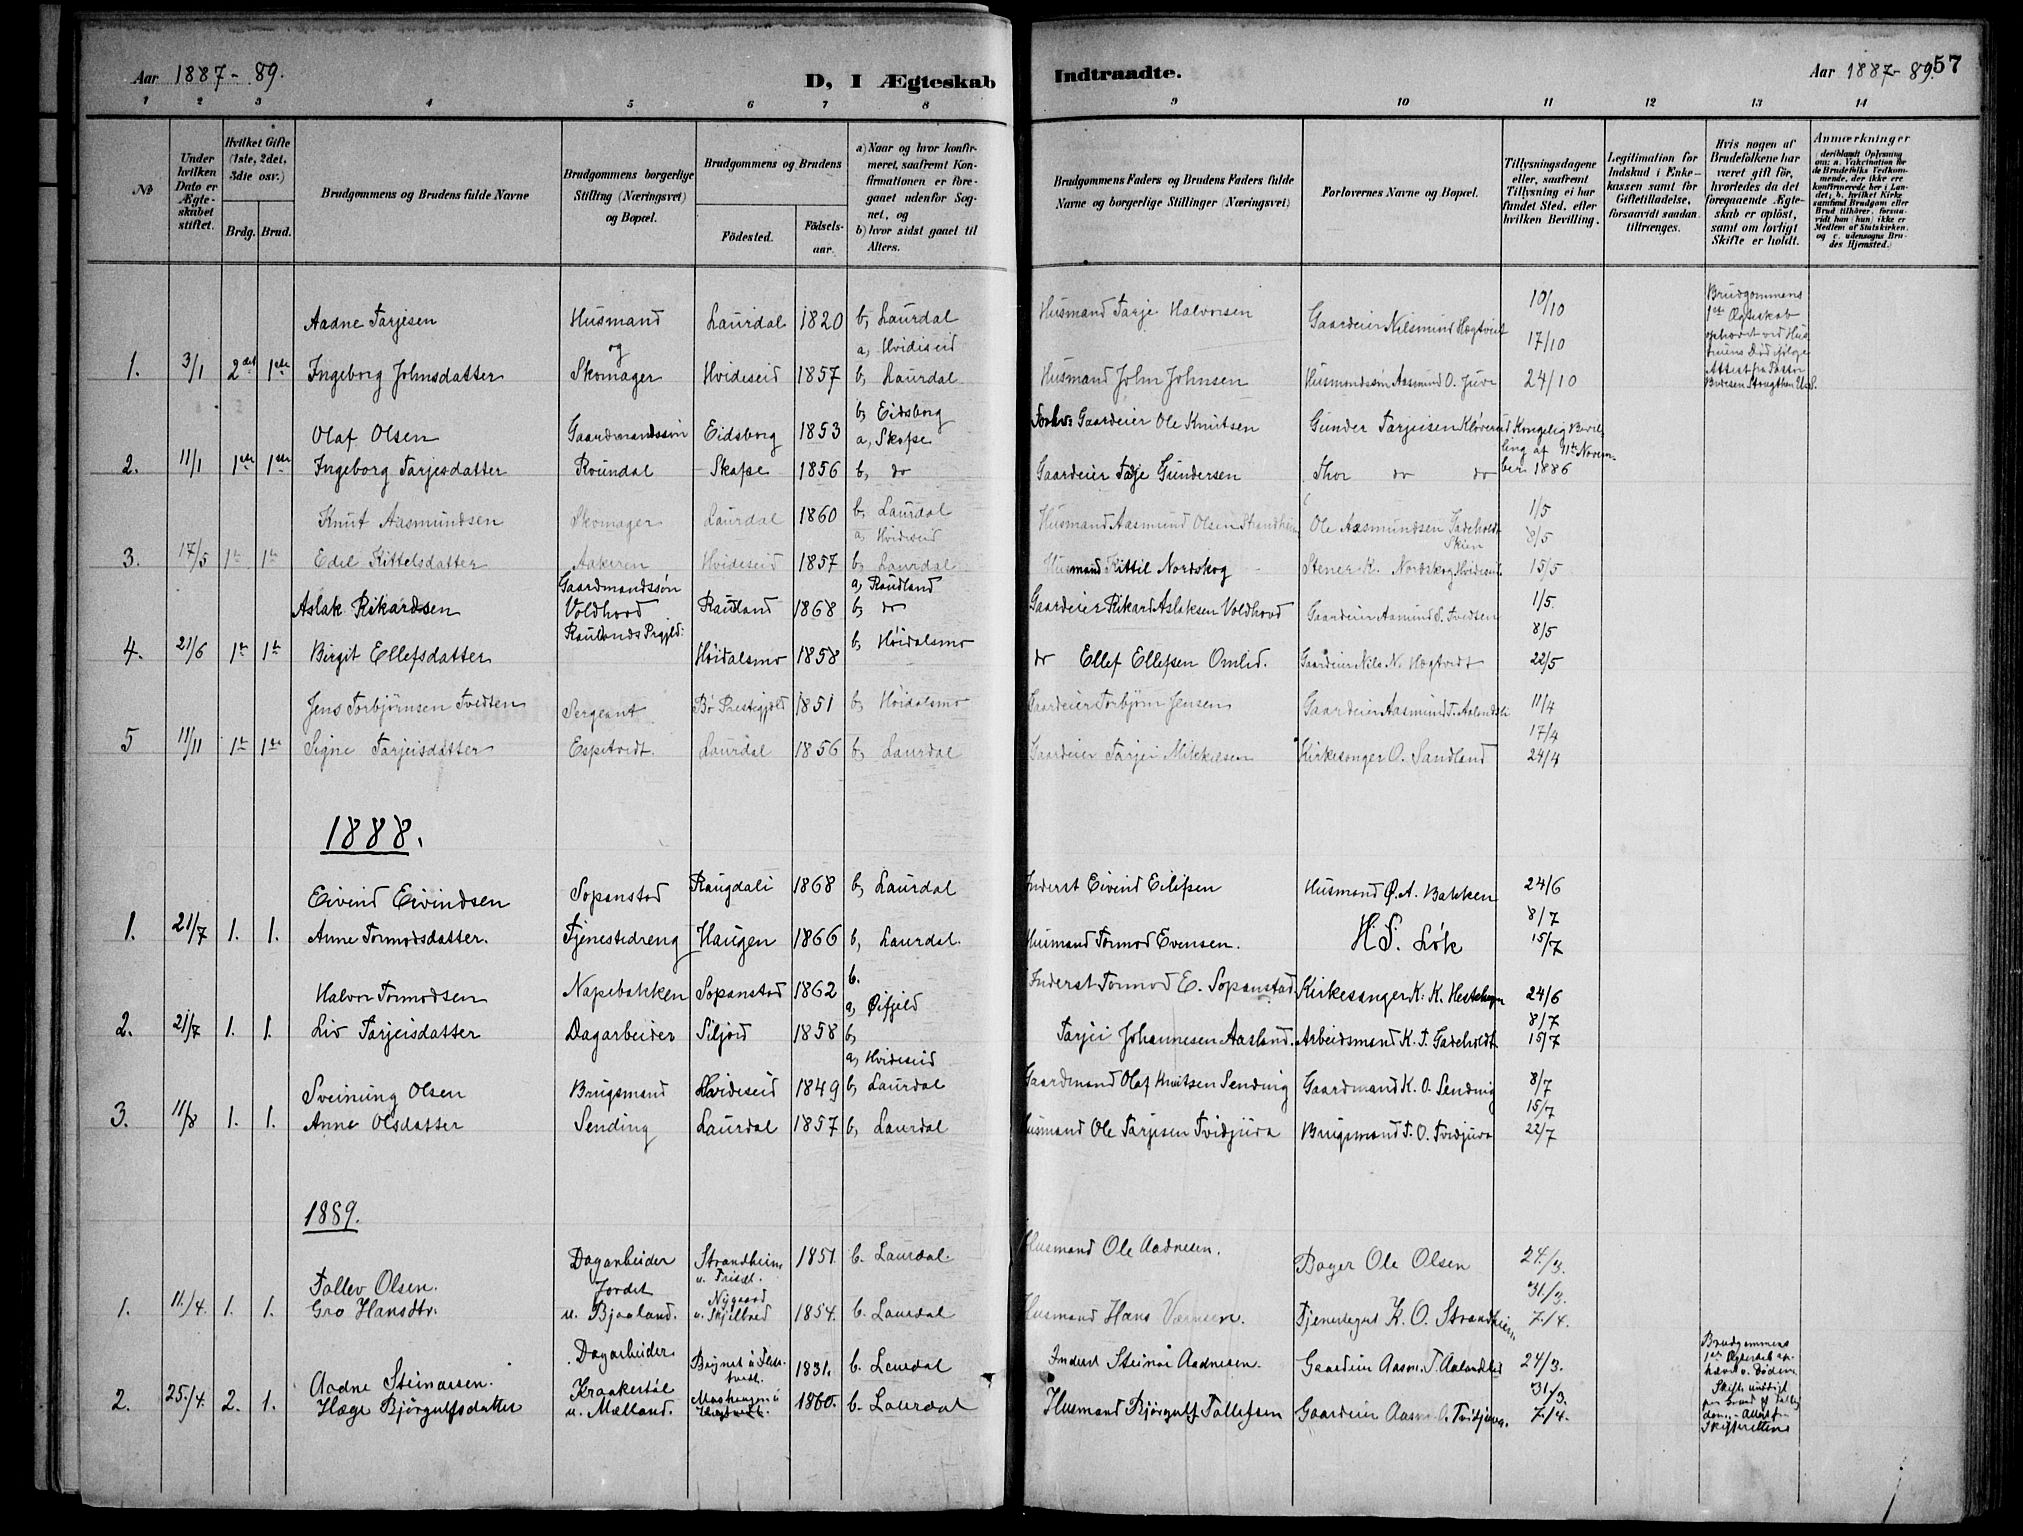 Aar 1887-89.
D, I Ægteskab
Indtraadte.
Aar 1887-89.
57
1 2 3 4 5 6 7 8 9 10 11 12 13 14
No
Under hvilken Dato er Ægteskabet stiftet.
Hvilket Gifte (1ste, 2det, 3die osv.)
Brdg. Brud.
Brudgommens og Brudens fulde Navne
Brudgommens borgerlige Stilling (Næringsvei) og Bopæl.
Brudgommens og Brudens
Fødested. Fødselsaar.
a) Naar og hvor konfirmeret, saafremt Konfirmationen er foregaaet udenfor Sognet, og
b) hvor sidst gaaet til Alters.
Brudgommens Faders og Brudens Faders fulde Navne og borgerlige Stillinger (Næringsvei)
Forlovernes Navne og Bopæl.
Tillysningsdagene eller, saafremt Tillysning ei har fundet Sted, efter hvilken Bevilling.
Legitimation for Indskud i Enkekassen samt for Giftetilladelse, forsaavidt saadan tiltrænges.
Hvis nogen af Brudefolkene har været gift før, hvorledes da det foregaaende Ægteskab er opløst, samt om lovligt Skifte er holdt.
Anmærkninger
deriblandt Oplysning om: a. Vakcination for de Brudefolks Vedkommende, der ikke ere konfirmerede her i Landet; b. hvilket Kirkesamfund Brudgom eller Brud tilhører, forsaavidt han (hun) ikke er Medlem af Statskirken, og c. udensogns Brudes Hjemsted.)
Aadne Tarjesen Husmand Laurdal 1820 b, Laurdal Husmand Tarje Halvorsen Gaardeier Nilsmund Hægtveit 10/10
og a, Hvideseid 17/10
1. 3/1 2det 1ste Ingeborg Johnsdatter Skomager Hvideseid 1857 b, Laurdal Husmand John Johnsen Husmandssøn Aasmund O. Juve 24/10
Brudgommens
1ste Ægteskab
ophævet ved Hus
truens Død ifølge
Attest fra Pastor
b, Eidsborg
Olaf Olsen Gaardmandssøn Eidsborg 1853 a, Skafse Forhv: Gaardeier Ole Knutsen Gunder Tarjeisen Kongelig Bevil-
ling af 11te Novem-
2. 11/1 1ste 1ste Ingeborg Tarjesdatter Roundal Skafse 1856 b, do Gaardeier Tarje Gundersen Thor do do ber 1886
Knut Aasmundsen Skomager Laurdal 1860 b, Laurdal Husmand Aasmund Olsen Strandheim Ole Aasmundsen Gadeholdt 1/5
a, Hvideseid Skien 8/5
3. 17/5 1ste 1ste Edel Kittelsdatter Aakeren Hvideseid 1857 b, Laurdal Husmand Kittil Nordskog Stener K. Nordskog Hvideseid 15/5
Gaardmandssøn a, Raudland
Aslak Rikardsen Voldhovd Rauland 1868 b, do Gaardeier Rikard Aslaksen Voldhovd Gaardeier Aasmund S. Tvedten 1/5
Raulands Prgjeld: 8/5
4. 21/6 1ste 1ste Birgit Ellefsdatter Høidalsmo 1858 b, Høidalsmo do Ellef Ellefsen Omlid. Gaardeier Nils N. Hægtvedt 22/5
Jens Torbjørnsen Tvedten Sergeant Bø Prestegjeld 1851 b, Høidalsmo Gaardeier Torbjørn Jensen Gaardeier Aasmund T. Aalandsli 11/4
17/4
5 11/11 1ste 1ste Signe Tarjeisdatter Espetvedt. Laurdal 1856 b, Laurdal Gaardeier Tarjei Mikkelsen Kirkesanger O. Sandland 24/4
1888.
Eivind Eivindsen Sopanstad Raugdali 1868 b, Laurdal Inderst Eivind Eilefsen Husmand Ø. A. Bakken 24/6
8/7
1. 21/7 1. 1. Anne Tormodsdatter. Tjenestedreng Haugen 1866 b, Laurdal. Husmand Tormod Evensen. H. S. Løk 15/7
Halvor Tormodsen Napebakken Sopanstad 1862 b. Inderst Tormod E. Sopanstad Kirkesanger K. K. Hestehagen 24/6
a, Øifjeld 8/7
2. 21/7 1. 1. Liv Tarjeisdatter Dagarbeider Siljord 1858 b, Tarjei Johannesen Aasland. Arbeidsmand K. T. Gadeholdt 15/7
a, Hvideseid
Sveinung Olsen Brugsmand Hvideseid 1849 b, Laurdal Gaardmand Olaf Knutsen Sending Gaardmand K. O. Sending 8/7
15/7
3. 11/8 1. 1. Anne Olsdatter Sending Laurdal 1857 b, Laurdal Husmand Ole Tarjesen Tvidjuva Brugsmand T. O. Tvidjuva 22/7
1889.
Dagarbeider Strandheim 1851. b. Laurdal. Husmand Ole Aadnesen. Bager Ole Olsen 24./3.
Tollev Olsen. Jordet 31/3.
Nygaard
1. 11./4. 1. 1. Gro Hansdtr. u. Bjaaland. u. Skjelbred 1854. b. Laurdal Husmand Hans Værnsen. Tjenestegut K. O. Strandheim 7./4.
Dagarbeider 1831. b. Laurdal Inderst Steinar Aadnesen. Gaardeier Aasm. T. Aalandslid 24/3.
Aadne Steinarsen. Kraakestøl 31/3.
2. 25./4. 2. 1. Hæge Bjørgulfsdatter u. Mælland. 1860. b. Laurdal Husmand Bjørgulf Tollefsen Gaardeier Aasm. O. Tvidjuva. 7./4.
Brudgommens
1ste Ægteskab op-
hævet v. Døden.
Skifte unødigt
Skifteretten